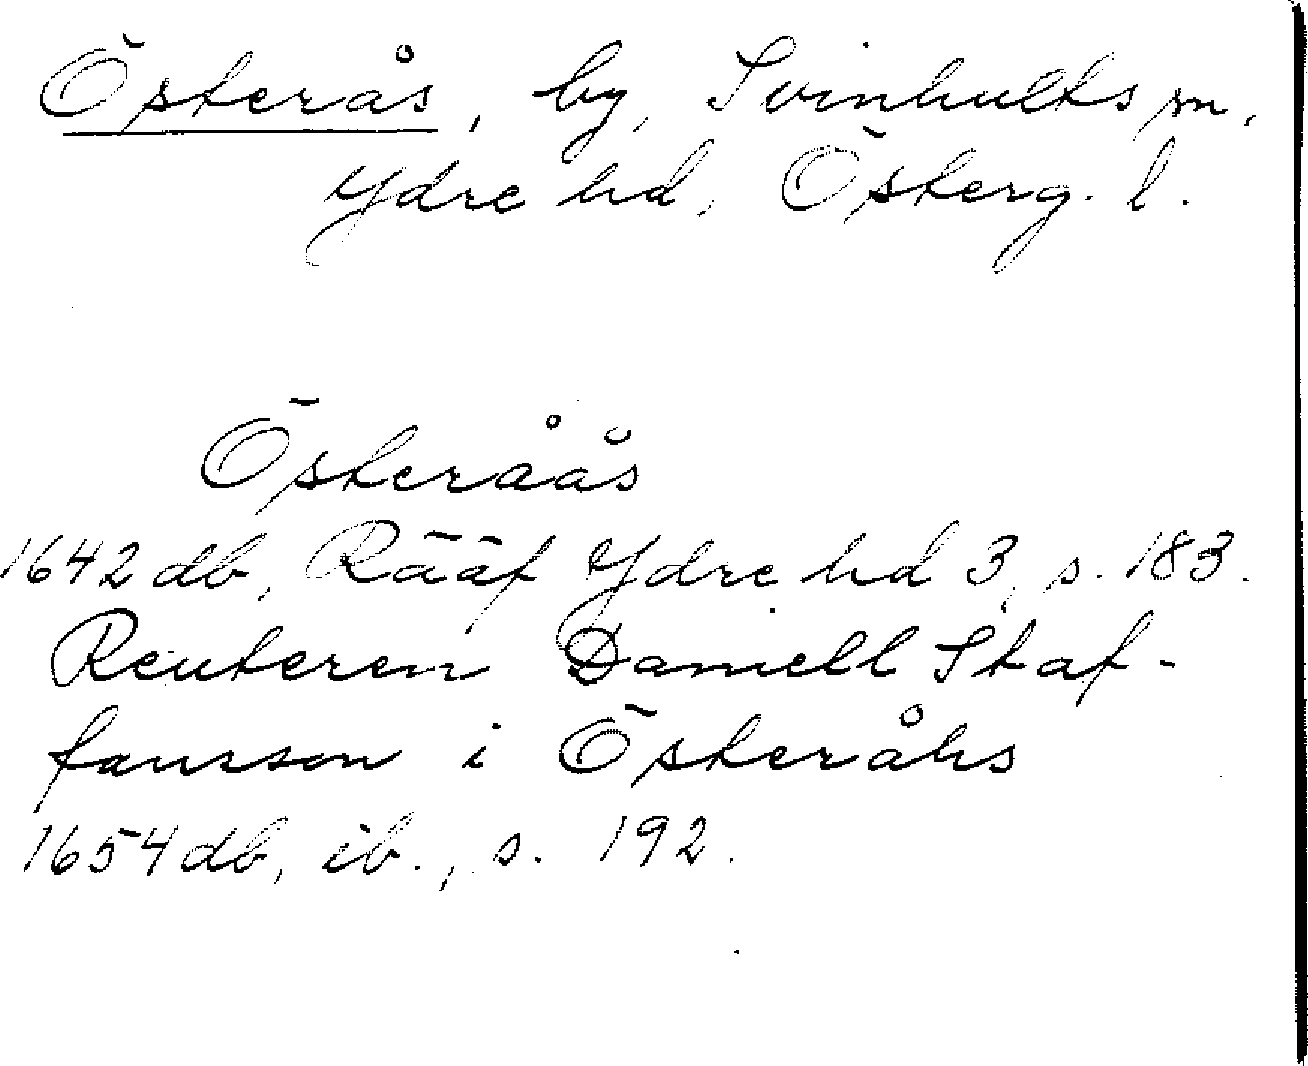 Österås, by, Svinhults sn,
Ydre hd, Österg. l.
Österåås
1642 db, Rääf Ydre hd 3, s. 183.
Reuteren Daniell Staf-
fansson i Österåhs
1654 db, ib., s. 192.